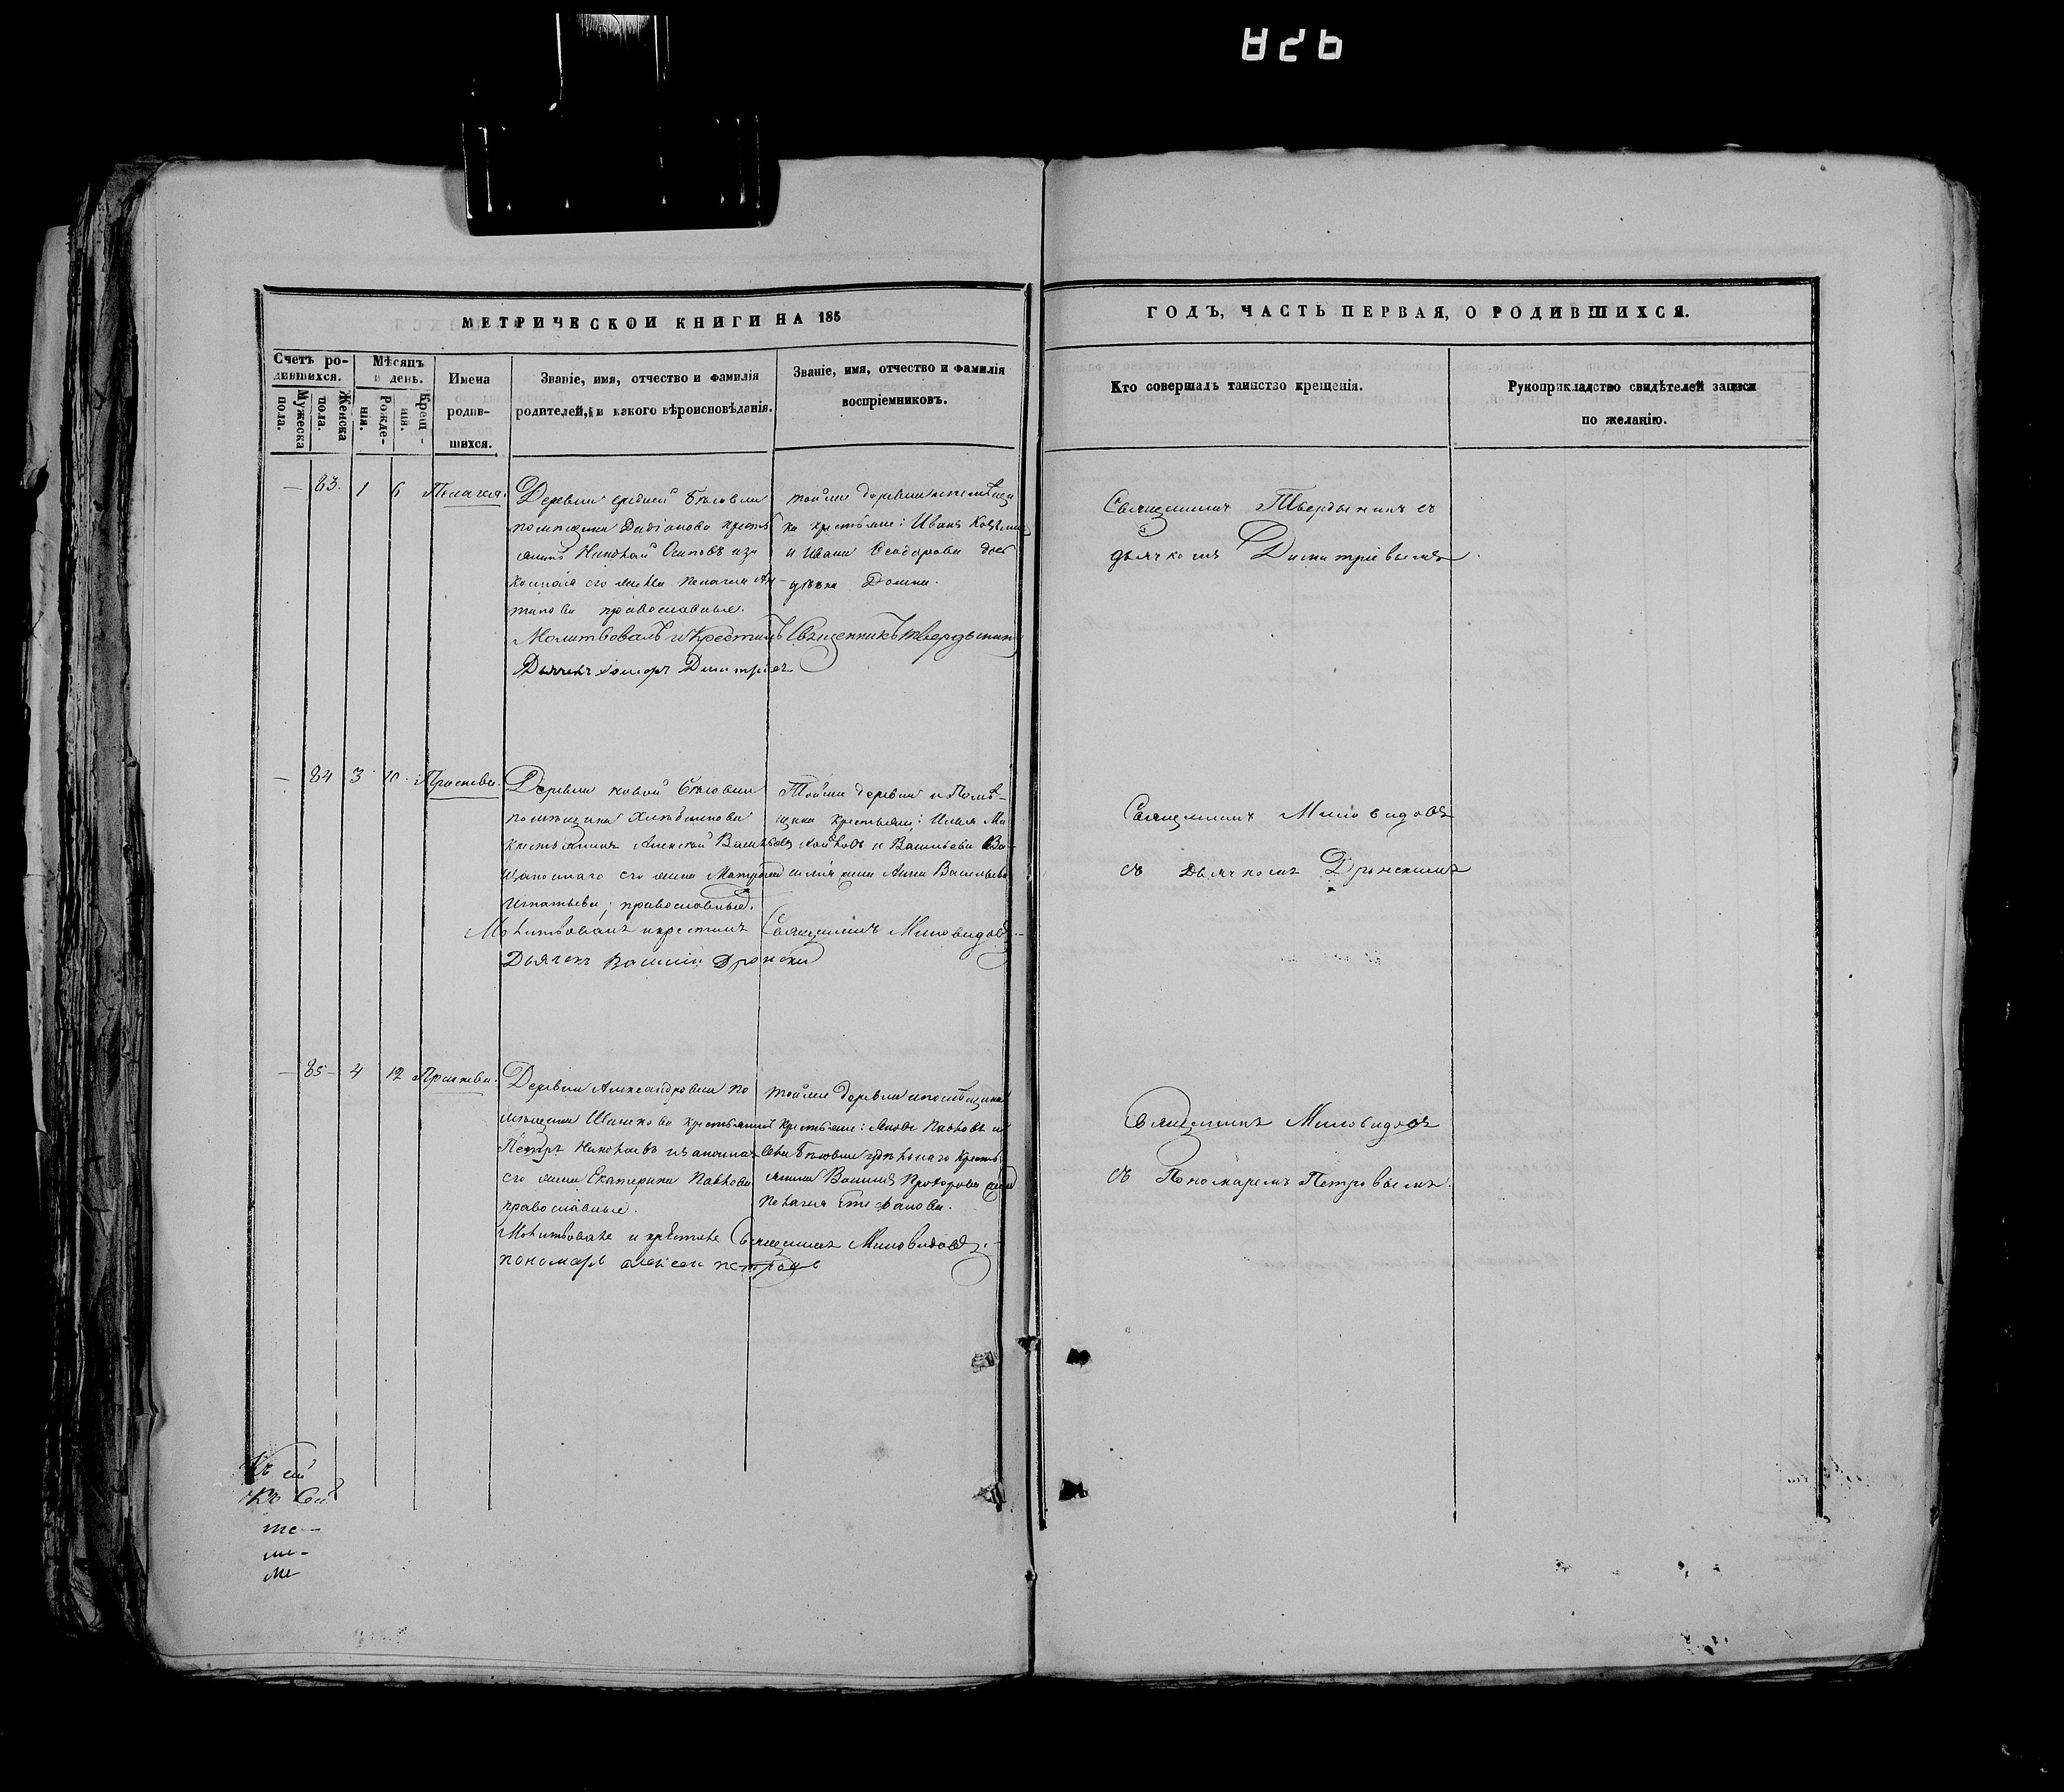 826
МЕТРИЧЕСКОЙ КНИГИ НА 185
ГОДЪ, ЧАСТЬ ПЕРВАЯ, О РОДИВШИХСЯ.
Счетъ ро-
дившихся.
Мужеска
пола.
Женска
пола.
Мѣсяцъ
и день.
Рожде-
нія.
Крещ-
нія.
Имена
родив-
шихся.
Званіе, имя, отчество и фамилія
родителей, и какого вѣроисповѣданія.
Званіе, имя, отчество и фамилія
воспріемниковъ.
Кто совершалъ таинство крещенія.
Рукоприкладство свидѣтелей записи
по желанію.
— 83. 1 6 Пелагея.
Деревни средней Бѣловки
помѣщика кресть
янинъ Николай Осиповъ иза
коннаго его жена Пелагея Ан
типова православные.
Молитвовалъ и Крестилъ Священникъ Твердынинъ
Дьячекъ Димитріевъ
тойже деревни и помѣщи
ка крестьяне: Иванъ
и Ивана Ѳеодорова доч
Домна.
Священникъ Твердынинъ съ
дьячкомъ Димитріевымъ.
— 84 3 10 Прасковья.
Деревни новой Бѣловки
помѣщика
крестьянинъ Алексѣй Васильевъ
изаконнаго его жена Матрона
Игнатьева, православные.
Молитвовалъ и крестилъ Священникъ Миловидовъ
Дьячекъ Василій Дронскій
Тойже деревни и Помѣ-
щика крестьяне: Илья Ми
хайловъ и Васильева
жена Анна Васильева
Священникъ Миловидовъ
съ дьячкомъ Дронскимъ
— 85 4 12 Прасковья.
Деревни Александровки по
мѣщика крестьянинъ
Петръ Николаевъ изаконная
его жена Екатерина Павлова
православные.
Молитвовалъ и крестилъ Священникъ Миловидовъ.
пономарь алексеи петровъ
тойже деревни и помѣщика
крестьяне: Яковъ Павловъ и
села Бѣловки удѣльнаго кресть
янина Василія Прохорова жена
Пелагея Стефанова.
Священникъ Миловидовъ
съ Пономаремъ Петровымъ.
Къ сей
Къ Сей
ме-
ме-
ме